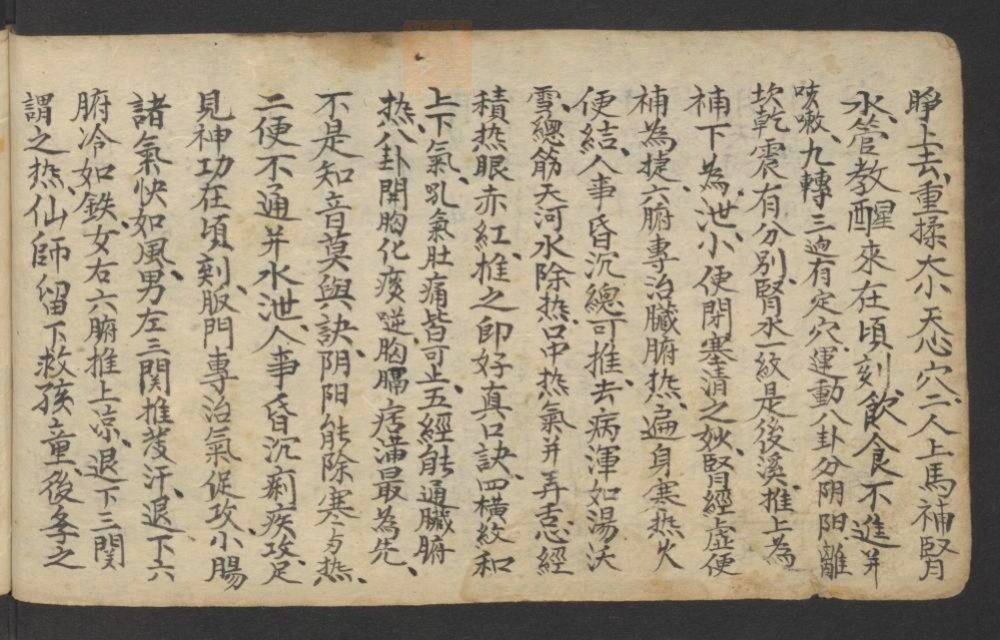 睁上去、重揉大小天心穴、二人上馬補腎
水、管教醒來在頃刻、飲食不進并
咳嗽、九轉三迴有定穴、運動八卦分阴阳、離
坎乾震有分别、腎水一紋是後溪、推上為
補下為泄、小便閉塞清之妙、腎經虛便
補為捷、六腑專治臟腑热、遍身寒热火
便結、人事昏沉總可推、去病渾如湯沃
雪、總筋天河水除热、口中热氣并弄舌、心經
積热眼赤紅、推之即好真口訣、四橫紋和
上下氣、吼氣肚痛皆可止、五經能通臟腑
热、八卦開胸化痰逆、胸膈痞滿最為先、
不是知音莫與訣、阴阳能除寒与热、
二便不通并水泄、人事昏沉痢疾攻、足
見神功在頃刻、版門專治氣促攻、小腸
諸氣快如風、男左三関推发汗、退下六
腑冷如鉄、女右六腑推上凉、退下三関
謂之热、仙師留下救孩童、後学之